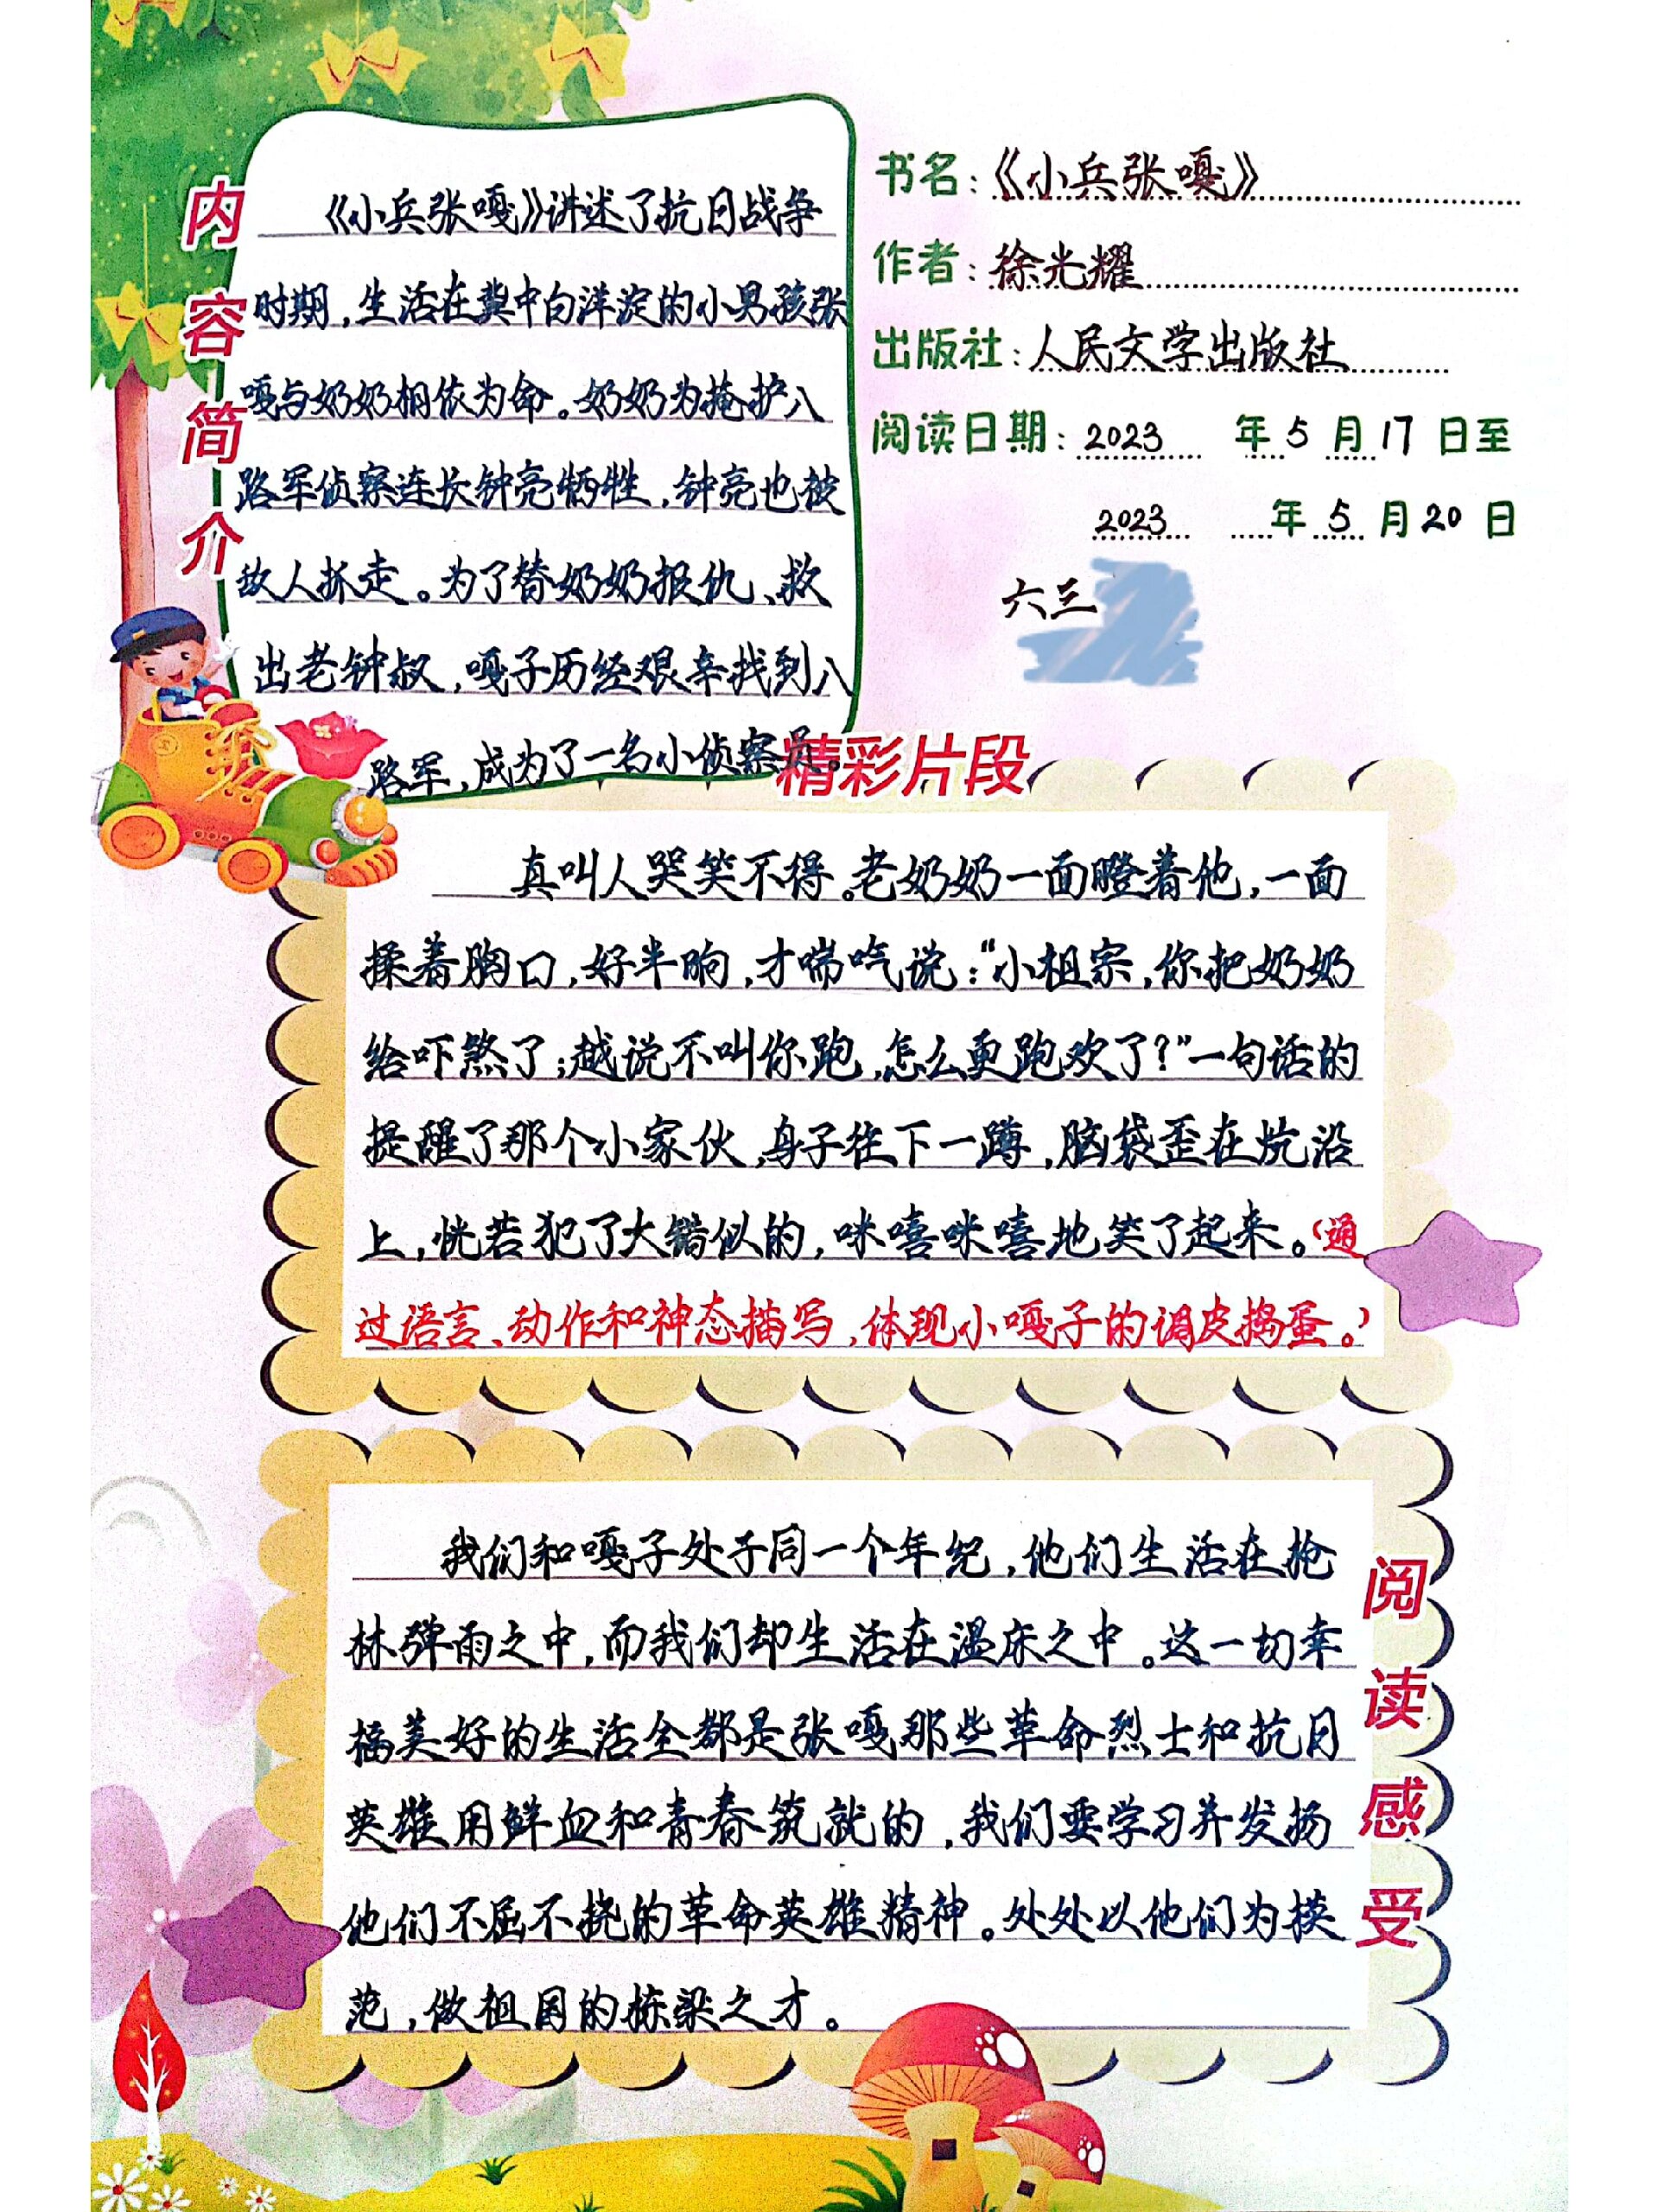 内容简介
《小兵张嘎》讲述了抗日战争
时期，生活在冀中白洋淀的小男孩张
嘎与奶奶相依为命。奶奶为掩护八
路军侦察连长钟亮牺牲，钟亮也被
敌人抓走。为了替奶奶报仇、救
出老钟叔，嘎子历经艰辛找到八
路军，成为了一名小侦察员。
书名：《小兵张嘎》
作者：徐光耀
出版社：人民文学出版社
阅读日期：2023 年 5 月 17 日至
2023 年 5 月 20 日
六三
精彩片段
真叫人哭笑不得。老奶奶一面瞪着他，一面
揉着胸口，好半晌，才喘吃说：“小祖宗，你把奶奶
给吓煞了；越说不叫你跑，怎么更跑欢了？”一句话的
提醒了那个小家伙，身子往下一蹲，脑袋歪在炕沿
上，恍若犯了大错似的，咪嘻咪嘻地笑了起来。（通
过语言、动作和神态描写，体现小嘎子的调皮捣蛋。）
阅读感受
我们和嘎子处于同一个年纪，他们生活在枪
林弹雨之中，而我们却生活在温床之中。这一切幸
福美好的生活全都是张嘎那些革命烈士和抗日
英雄用鲜血和青春筑就的，我们要学习并发扬
他们不屈不挠的革命英雄精神。处处以他们为模
范，做祖国的栋梁之才。